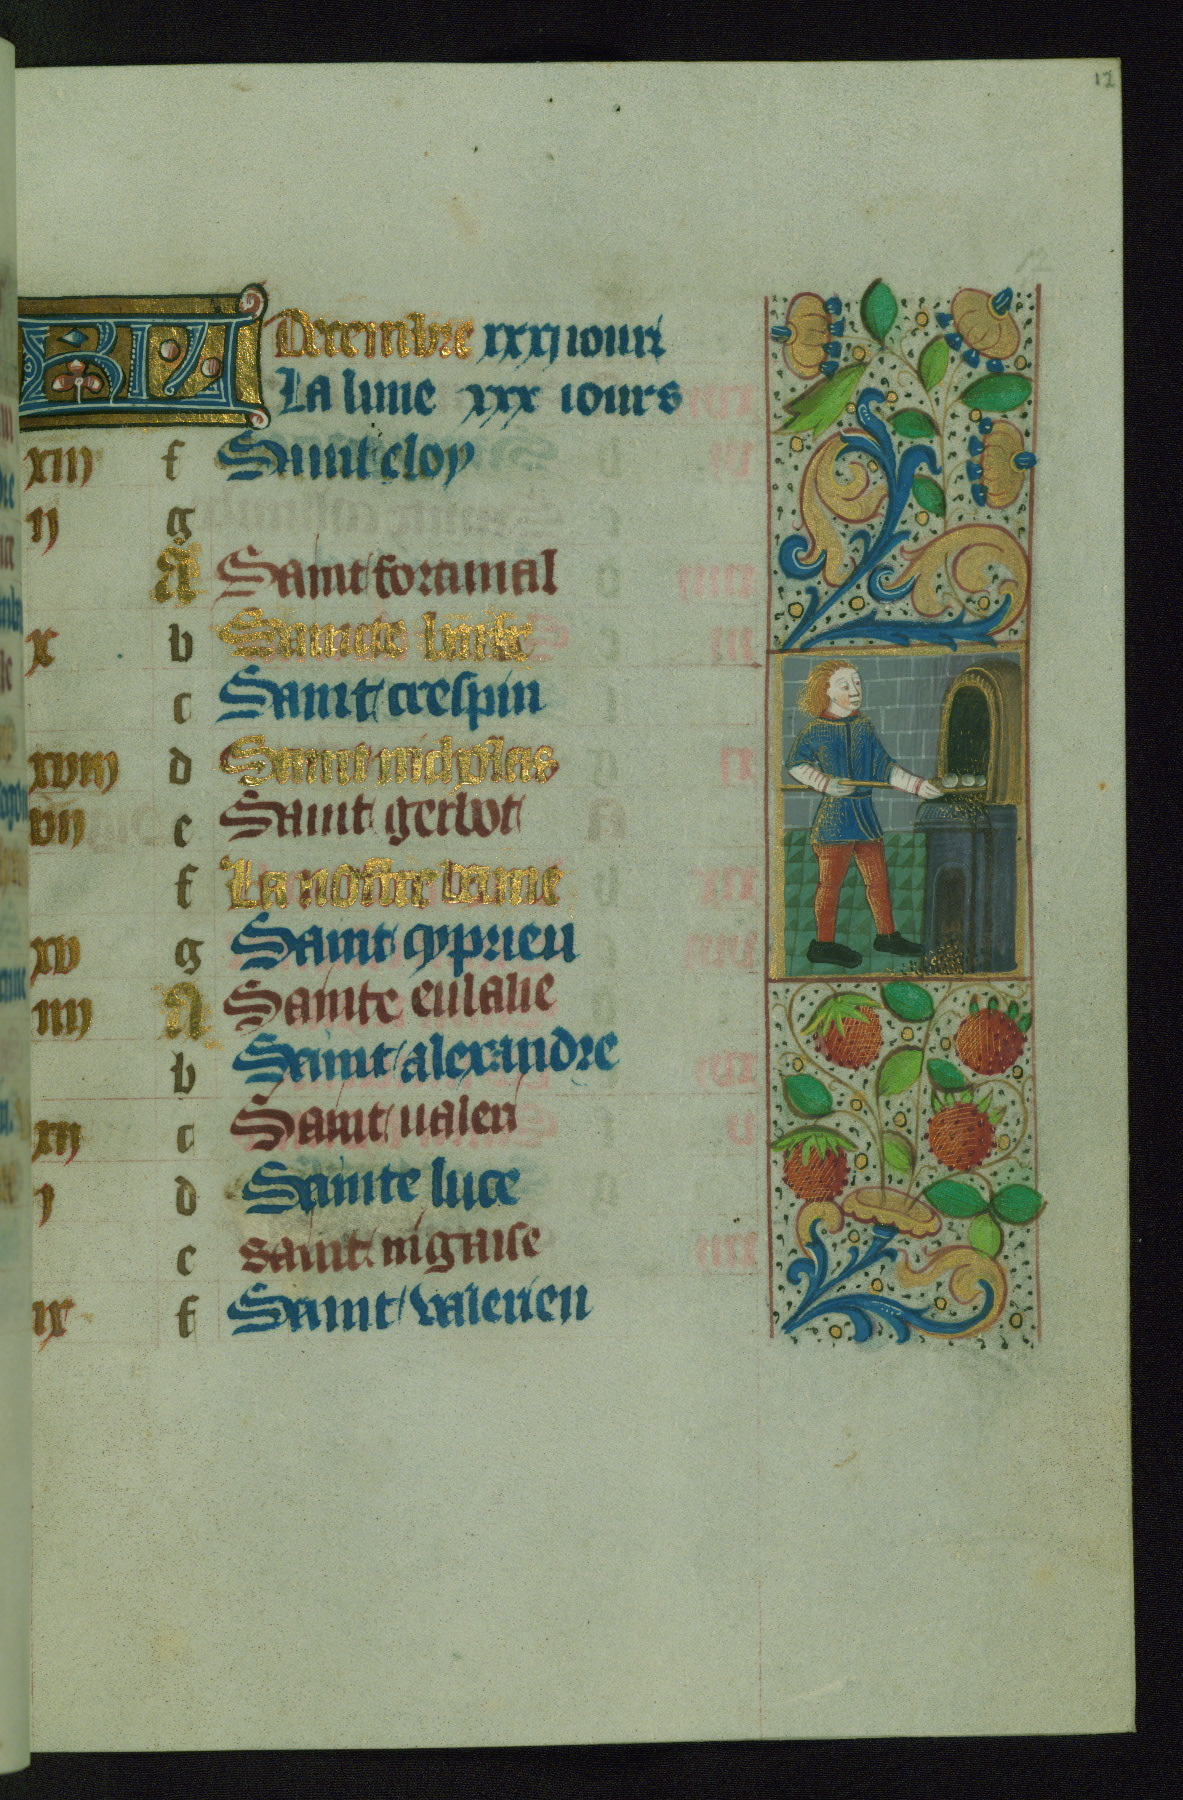 12
KL Decembre xxxi iours
La lune xxx iours
xiii f Saint eloy
ii g
A Saint fortunal
x b Saincte barbe
c Saint crespin
xviii d Saint nicholas
vii e Saint gerbot
f La nostre dame
xv g Saint cyprien
iiii A Sainte eulalie
b Saint alexandre
xii c Saint ualeri
i d Sainte luce
e saint nigaise
ix f Saint valerien